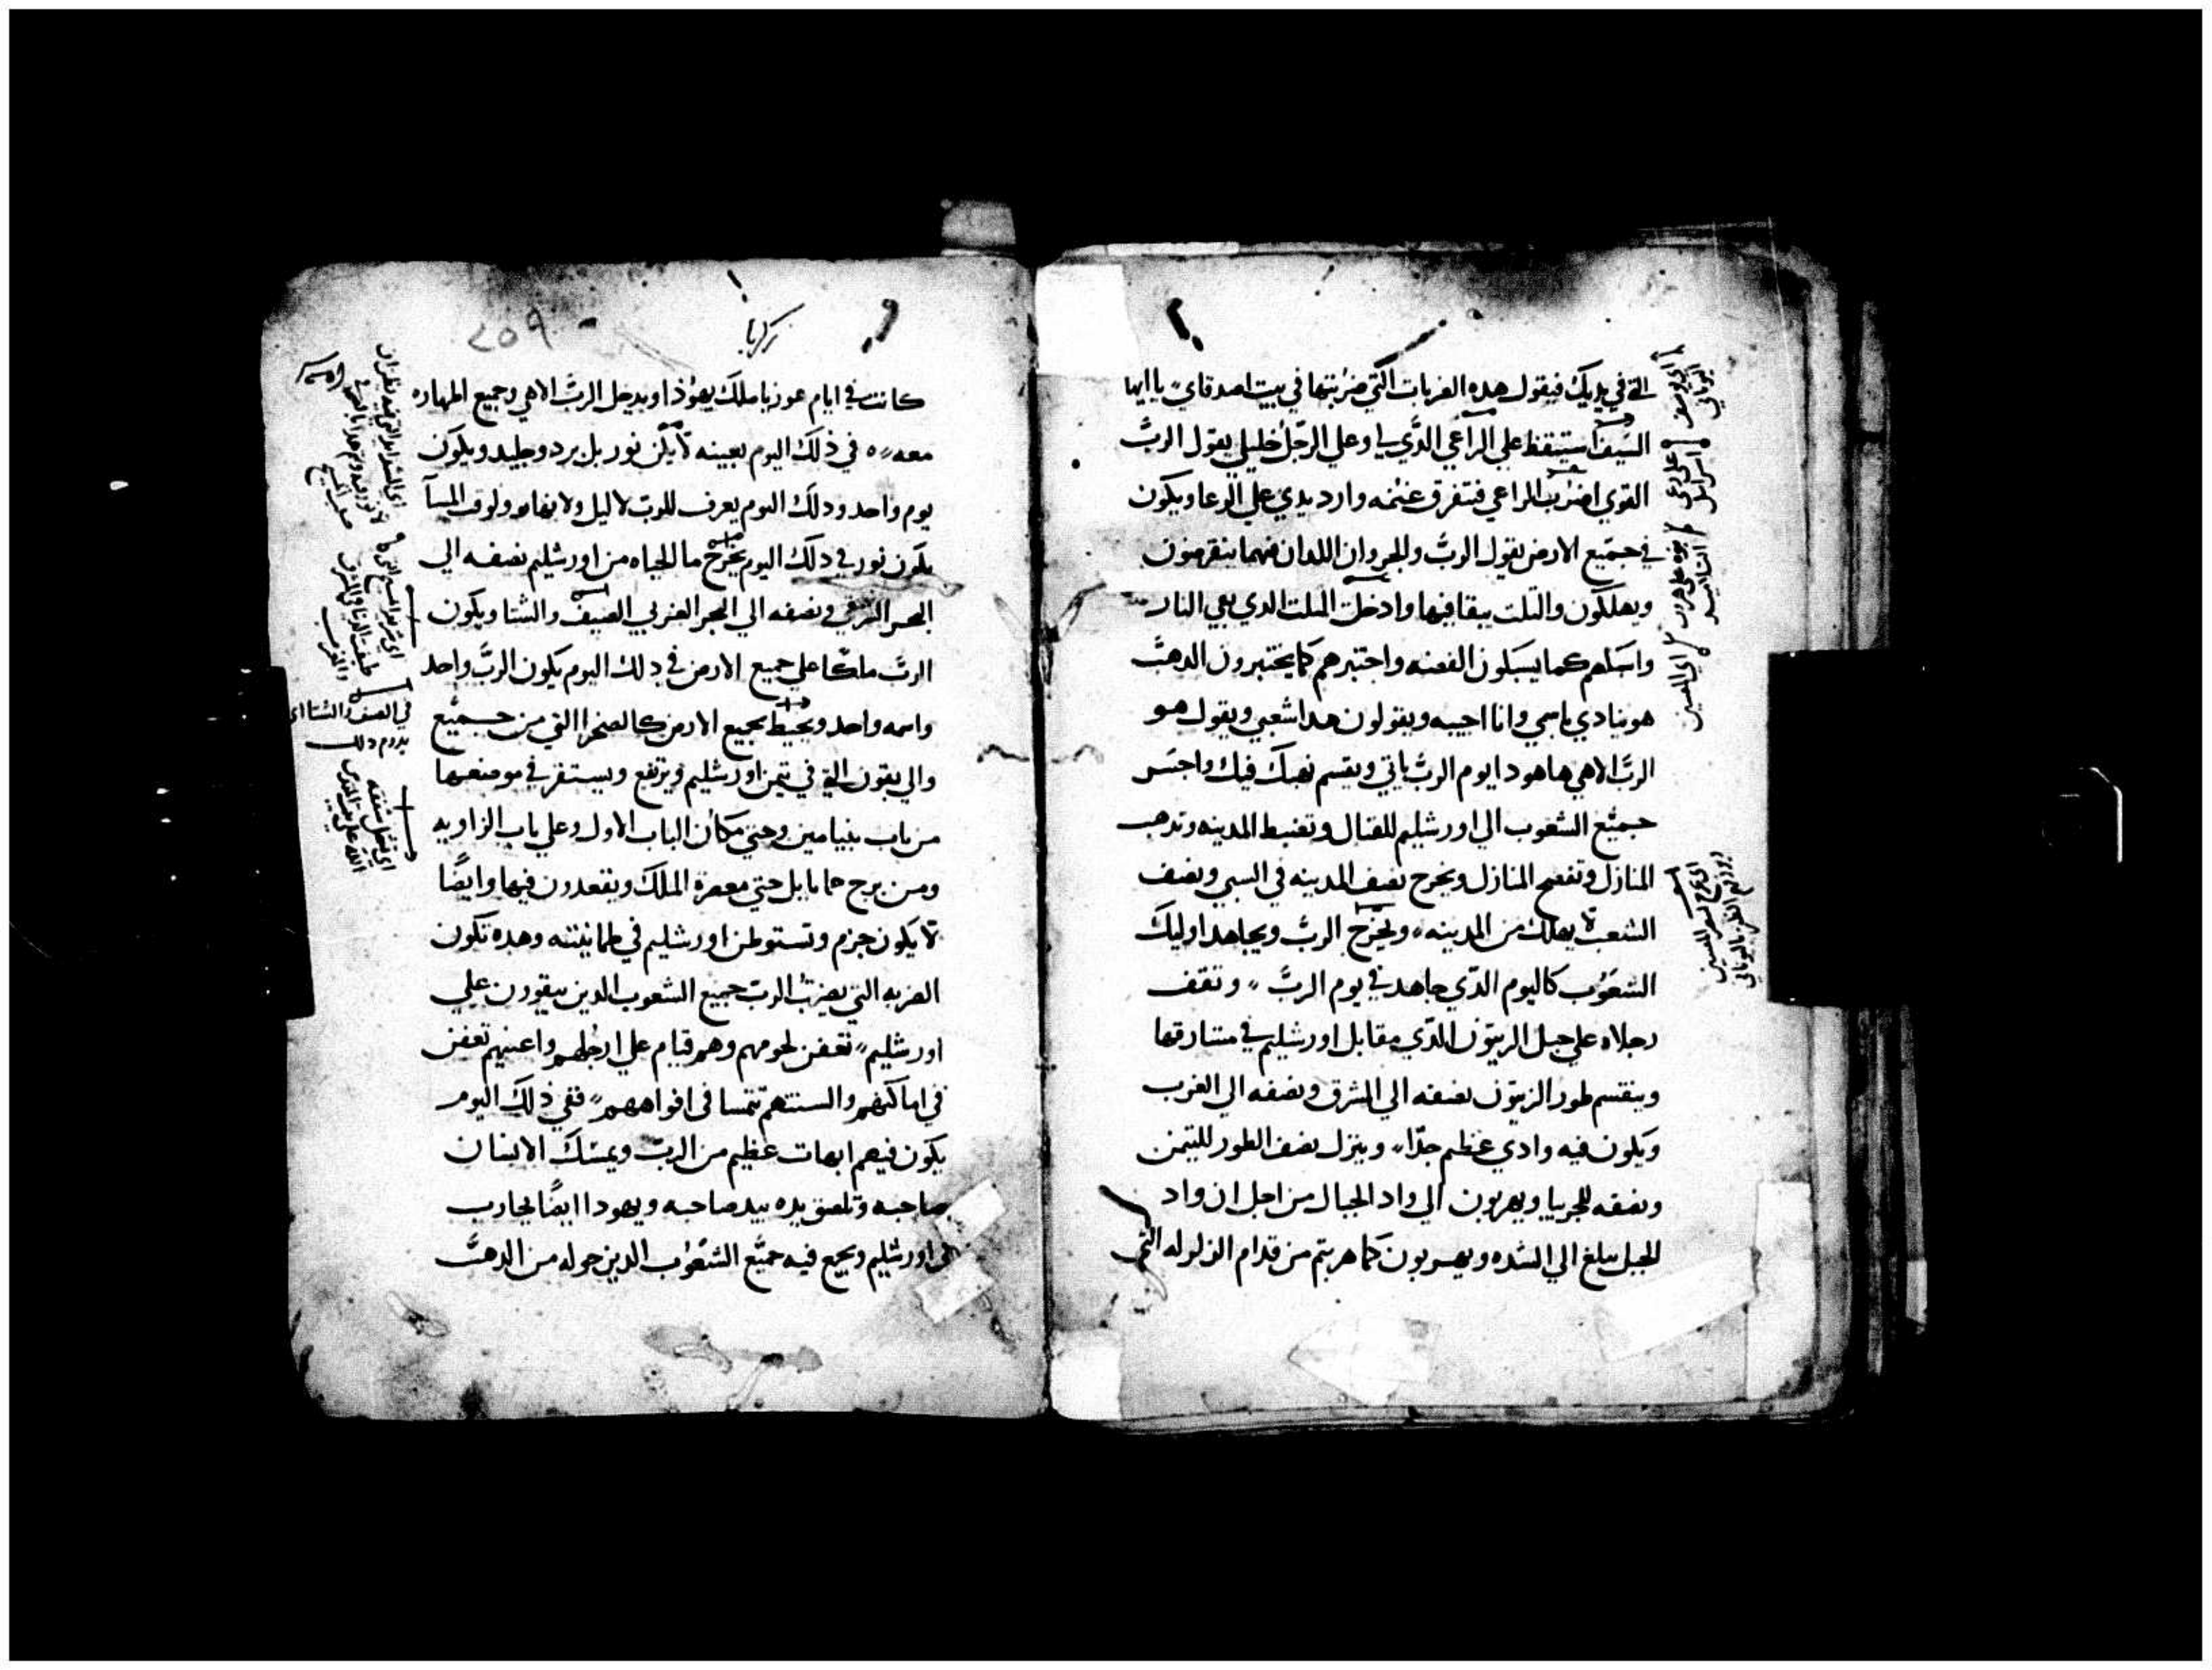 التي في يديك فيقول هده الضربات التي ضربتها في بيت اصدقاي يا ايها
السيف استيقظ علي الراعي الدي لي وعلي الرجل خليلي يقول الرب
القوي اضرب الراعي فتتفرق غنمه وارد يدي علي الرعا ويكون
في جميع الارض يقول الرب والجزوان اللدان فيها ينقرضون
ويهلكون والتلت يبقا فيها وادخل التلت الدي بقي النار
واسبكهم كما يسبكون الفضه واختبرهم كما يختبرون الدهب
هو ينادي باسمي وانا اجيبه ويقولون هدا شعبي ويقول هو
الرب الاهي هاهودا يوم الرب ياتي ويقسم نهبك فيك واحشر
جميع الشعوب الي اورشليم للقتال وتضبط المدينه وتدهب
المنازل وتفضح المنازل ويخرج نصف المدينه في السبي ونصف
الشعب لا يهلك من المدينه ويخرج الرب ويجاهد اوليك
الشعوب كاليوم الدي جاهد في يوم الرب وتقف
رجلاه علي جبل الزيتون الدي مقابل اورشليم في مشارقها
وينقسم طور الزيتون نصفه الي الشرق ونصفه الي الغرب
ويكون فيه وادي عظيم جدا وينزل نصف الطور للتيمن
ونصفه للجربيا ويهربون الي واد الجبال من اجل ان واد
الجبل يبلغ الي الشده ويهربون كما هربتم من قدام الزلزله التي
زكريا
٢٥٩
كانت في ايام عوزيا ملك يهوذا ويدخل الرب الاهي وجميع الطهاره
معه في ذلك اليوم بعينه لا يكن نور بل برد وجليد ويكون
يوم واحد ودلك اليوم يعرف للرب لا ليل ولا نهار ولوقت المسآ
يكون نور في دلك اليوم يخرج ما الحياه من اورشليم نصفه الي
البحر الشرقي ونصفه الي البحر الغربي الصيف والشتا ويكون
الرب ملكا علي جميع الارض في دلك اليوم يكون الرب واحد
واسمه واحد ويحيط بجميع الارض كالصحرا التي من جميع
والي يقون التي في تيمن اورشليم ويرتفع ويستقر في موضعها
من باب بنيامين وحتي مكان الباب الاول وعلي باب الزاويه
ومن برج حامايل حتي معصرة الملك ويقعدون فيها وايضًا
لا يكون جزم وتستوطن اورشليم في طمانينته وهده تكون
الضربه التي يضرب الرب جميع الشعوب الدين يبقودن علي
اورشليم تعفن لحومهم وهم قيام علي ارجلهم واعينهم تعفن
في اماكنهم والسنتهم تتمسا في افواههم ففي ذلك اليوم
يكون فيهم ابهات عظيم من الرب ويمسك الانسان
صاحبه وتلصق يده بيد صاحبه ويهودا ايضًا يحارب
في اورشليم ويجمع فيه جميع الشعوب الدين حوله من الدهب
في الصيف والشتا اي
يدوم دلك